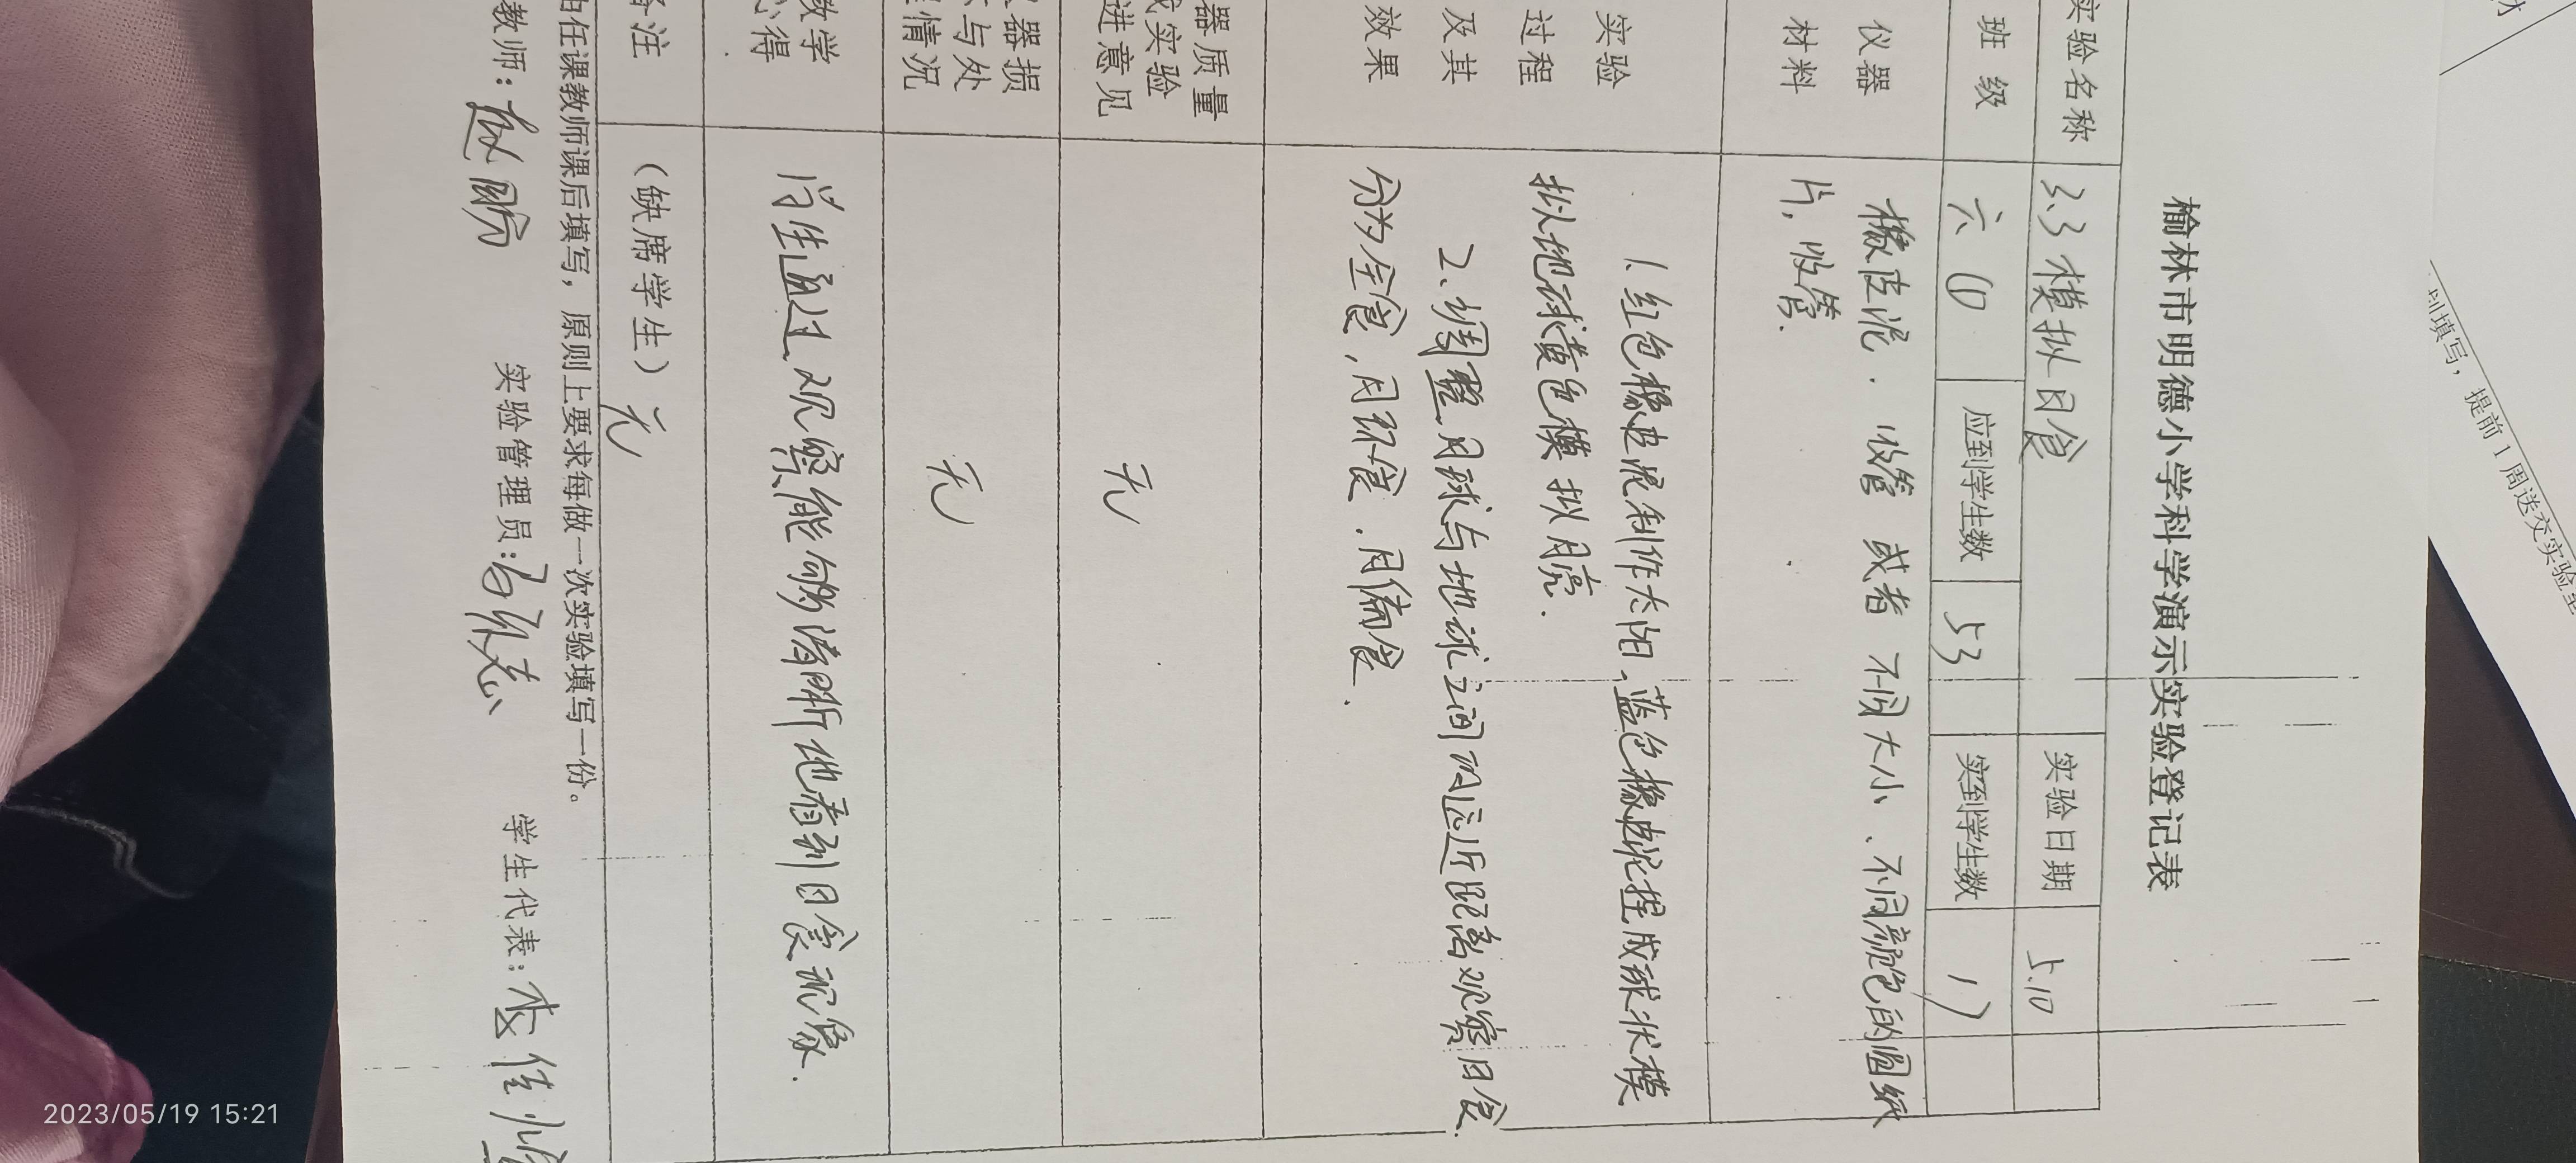 榆林市明德小学科学演示实验登记表
实验名称 3.3模拟日食 实验日期 5.10
班 级 六(1) 应到学生数 53 实到学生数
仪器
材料
橡皮泥.吸管 或者 不同大小、不同颜色的圆纸
片,吸管.
实验
过程
及其
效果
1.红色橡皮泥制作太阳、蓝色橡皮泥捏成球状模
拟地球黄色模拟月亮.
2、调整月球与地球之间的远近距离观察日食.
分为全食,月环食.月偏食.
器质量
实验
进意见
无
器损
与处
情况
无
教学
心得
学生通过观察能够清晰地看到日食现象.
备注 (缺席学生) 无
由任课教师课后填写,原则上要求每做一次实验填写一份。
教师: 实验管理员: 学生代表:李佳
划填写,提前1周送交实验室
2023/05/19 15:21